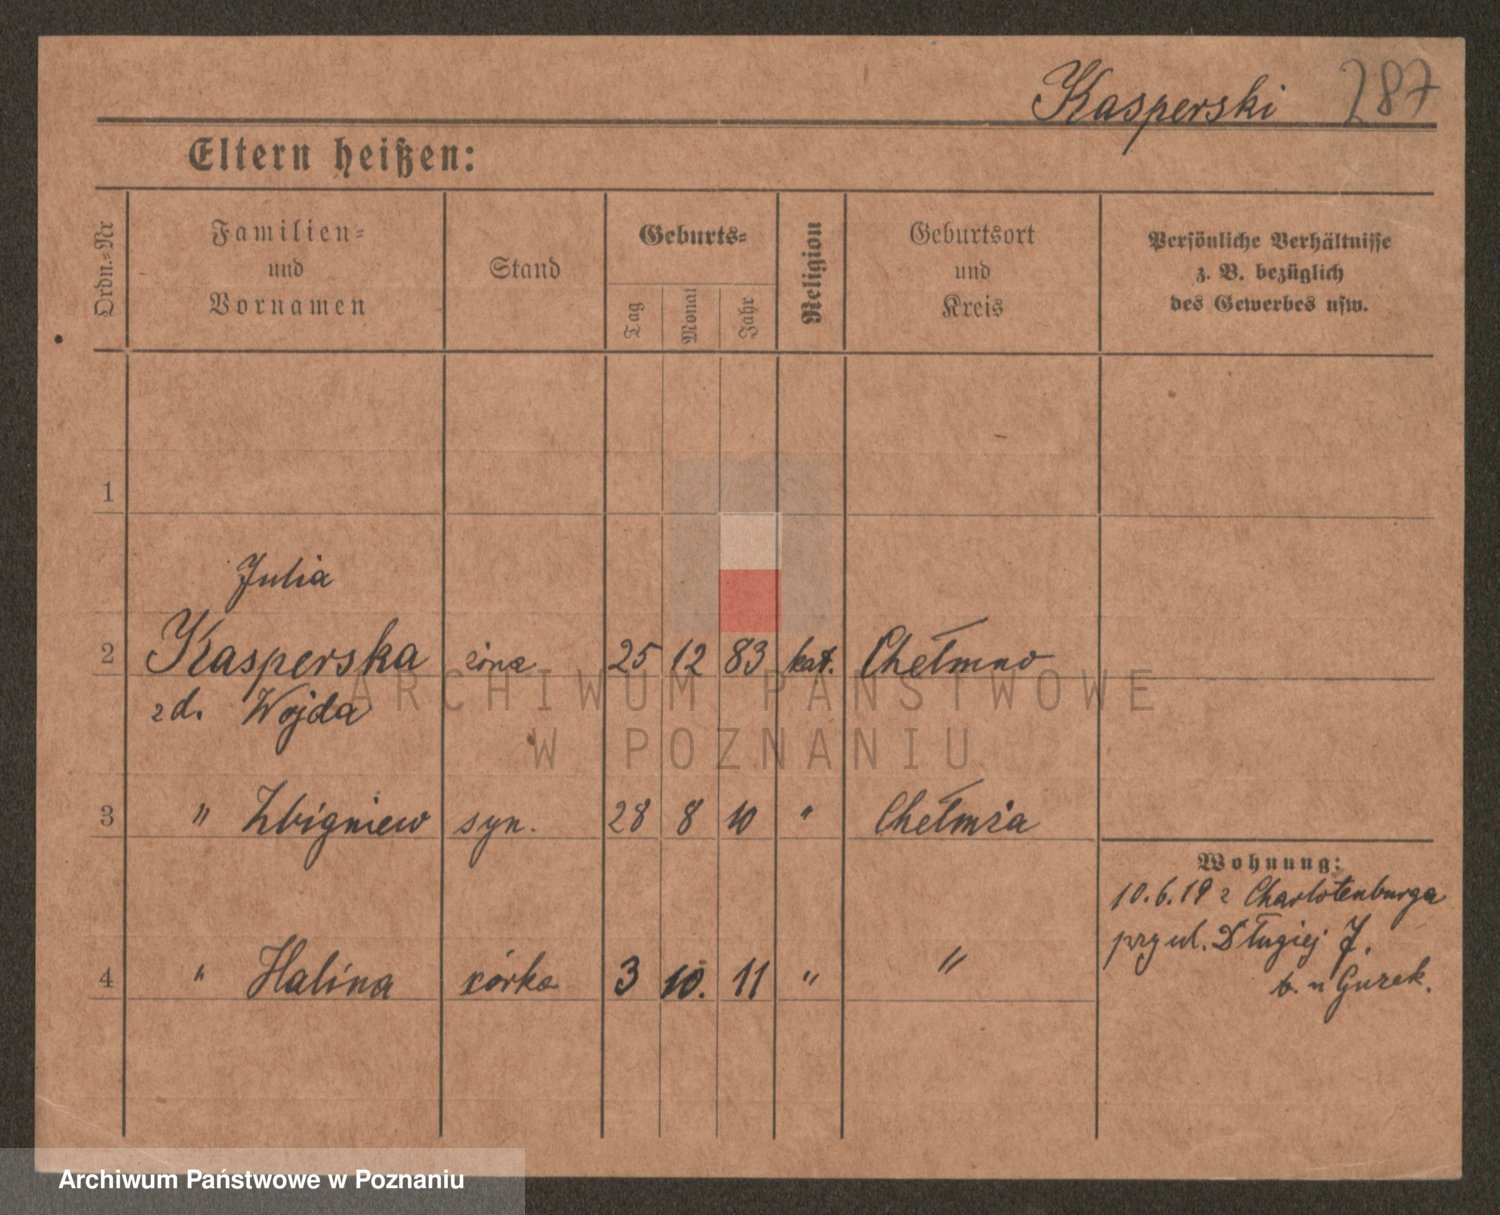 Kasperski 287
Eltern heißen:
Ordn.=Nr
Familien=
und
Vornamen
Stand
Geburts=
Tag
Monat
Jahr
Religion
Geburtsort
und
Kreis
Persönliche Verhältnisse
z. B. bezüglich
des Gewerbes usw.
1
Julia
2 Kasperska żona 25 12 83 kat. Chełmno
zd. Wojda
3 " Zbigniew syn. 28 8 10 " Chełmża
4 " Halina córka 3 10. 11 " "
Wohnung:
10.6.19 z Charlotenburga
przy ul. Długiej 7.
b. u Gurek.
ARCHIWUM PAŃSTWOWE
W POZNANIU
Archiwum Państwowe w Poznaniu